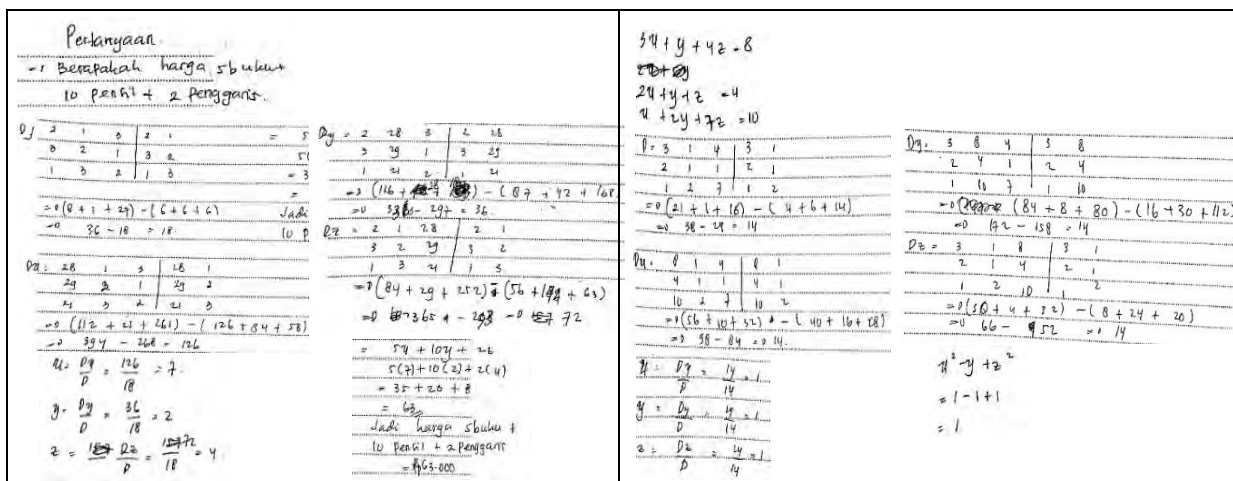 Pertanyaan
-1 Berapakah harga 5 buku +
10 pensil + 2 penggaris.
D) 2 1 3 | 2 1
3 2 1 | 3 2
1 3 2 | 1 3
=0 (8 + 1 + 27) - (6 + 6 + 6)
=0 36 - 18 = 18
= 5
5(
= 3
=
Jadi
10 P
Dx = 28 1 3 | 28 1
29 2 1 | 29 2
21 3 2 | 21 3
=0 (112 + 21 + 261) - (126 + 84 + 58)
=0 394 - 268 = 126
x = Dx/D = 126/18 = 7.
y = Dy/D = 36/18 = 2
z = Dz/D = 72/18 = 4
Dy = 2 28 3 | 2 28
3 29 1 | 3 29
1 21 2 | 1 21
=0 (116 + ) - (87 + 42 + 168
=0 - 297 = 36.
Dz = 2 1 28 | 2 1
3 2 29 | 3 2
1 3 21 | 1 3
=0 (84 + 29 + 252) - (56 + + 63)
=0 365 - =0 72
= 5x + 10y + 2z
5(7) + 10(2) + 2(4)
= 35 + 20 + 8
= 63
Jadi harga 5 buku +
10 pensil + 2 penggaris
= Rp63.000
3x + y + 4z = 8
2x + y + z = 4
x + 2y + 7z = 10
D = 3 1 4 | 3 1
2 1 1 | 2 1
1 2 7 | 1 2
=0 (21 + 1 + 16) - (4 + 6 + 14)
=0 38 - 24 = 14
Dx = 8 1 4 | 8 1
4 1 1 | 4 1
10 2 7 | 10 2
=0 (56 + 10 + 32) - (40 + 16 + 28)
=0 98 - 84 =0 14.
x = Dx/D = 14/14 = 1
y = Dy/D = 14/14 = 1
z = Dz/D = 14/14 = 1
Dy = 3 8 4 | 3 8
2 4 1 | 2 4
1 10 7 | 1 10
=0 (84 + 8 + 80) - (16 + 30 + 112)
=0 172 - 158 = 14
Dz = 3 1 8 | 3 1
2 1 4 | 2 1
1 2 10 | 1
=0 (30 + 4 + 32) - (8 + 24 + 20)
=0 66 - 52 =0 14
x² - y + z²
= 1 - 1 + 1
= 1